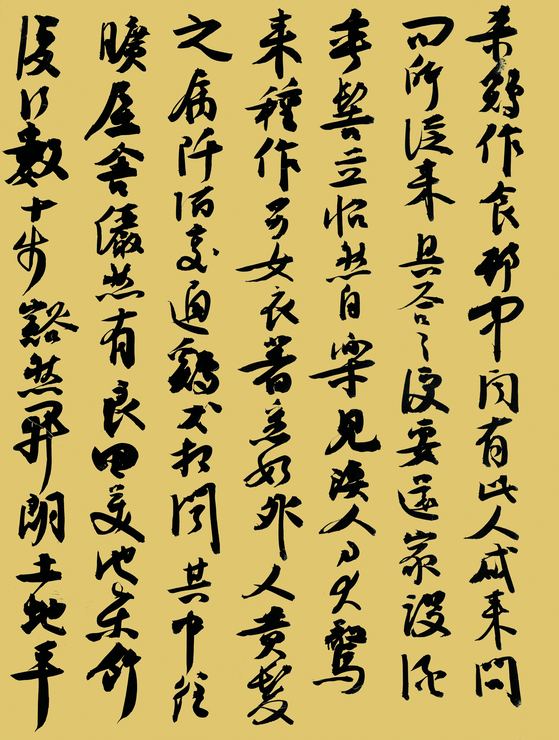 復行數十步豁然開朗土地平
曠屋舍儼然有良田美池桑竹
之屬阡陌交通鷄犬相聞其中往
来種作男女衣著悉如外人黄髮
垂髫並怡然自樂見漁人乃大驚
問所從来具答之便要還家設酒
殺鷄作食村中聞有此人咸来問